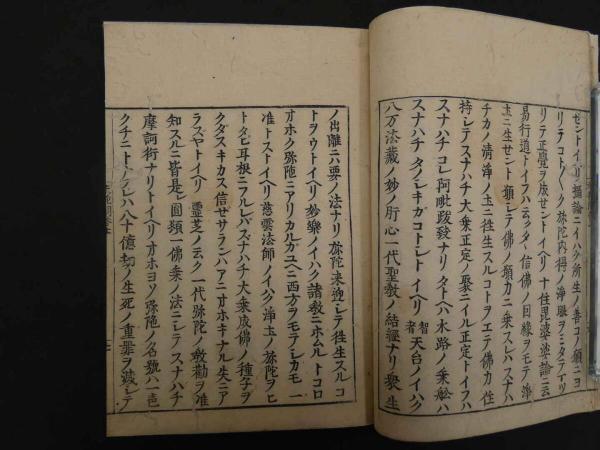 セントイヘリ攝論ニイハク所生ノ善コノ願ニヨ
リテコトノク弥陀内得ノ淨眼ヲミタテマツリ
リテ正覺ヲ成セントイヘリ十住毘婆娑論ニ云
易行道トイフハ云ク信佛ノ因縁ヲモテ淨
土ニ生セント願シテ佛ノ願力ニ乗スレハスナハ
チカノ清淨ノ土ニ往生スルコトヲエテ佛力住
持シテスナハチ大乗正定ノ聚ニイル正定トイフハ
スナハチコレ阿毗跋致ナリタトヘハ水路ノ乗舩ハ
スナハチタノシキカコトシトイヘリ智者天台ノイハク
八万法藏ノ妙ノ肝心一代聖教ノ結經ナリ衆生
ノ出離ニ六要ノ法ナリ弥陀来迎シテ往生スルコ
トヲウトイヘリ妙樂ノイハク諸教ニホムルトコロ
オホク弥陀ニアリカルカユヘニ西方ヲモテシカモ一
准トストイヘリ慈雲法師ノイハク淨土ノ弥陀ヲヒ
トタヒ耳根ニフルレハスナハチ大乗成佛ノ種子ヲ
クダスキカス信セサランハアニオホキナル失ニア
ラスヤトイヘリ靈芝ノ云ク一代弥陀ノ教勸ヲ准
知スルニ皆是レ圓頓一佛乗ノ法ニシテスナハチ
摩訶衍ナリトイヘリオホヨソ弥陀ノ名號ハ一邑
クチニトナフレハ八十億劫ノ生死ノ重罪ヲ滅シテ